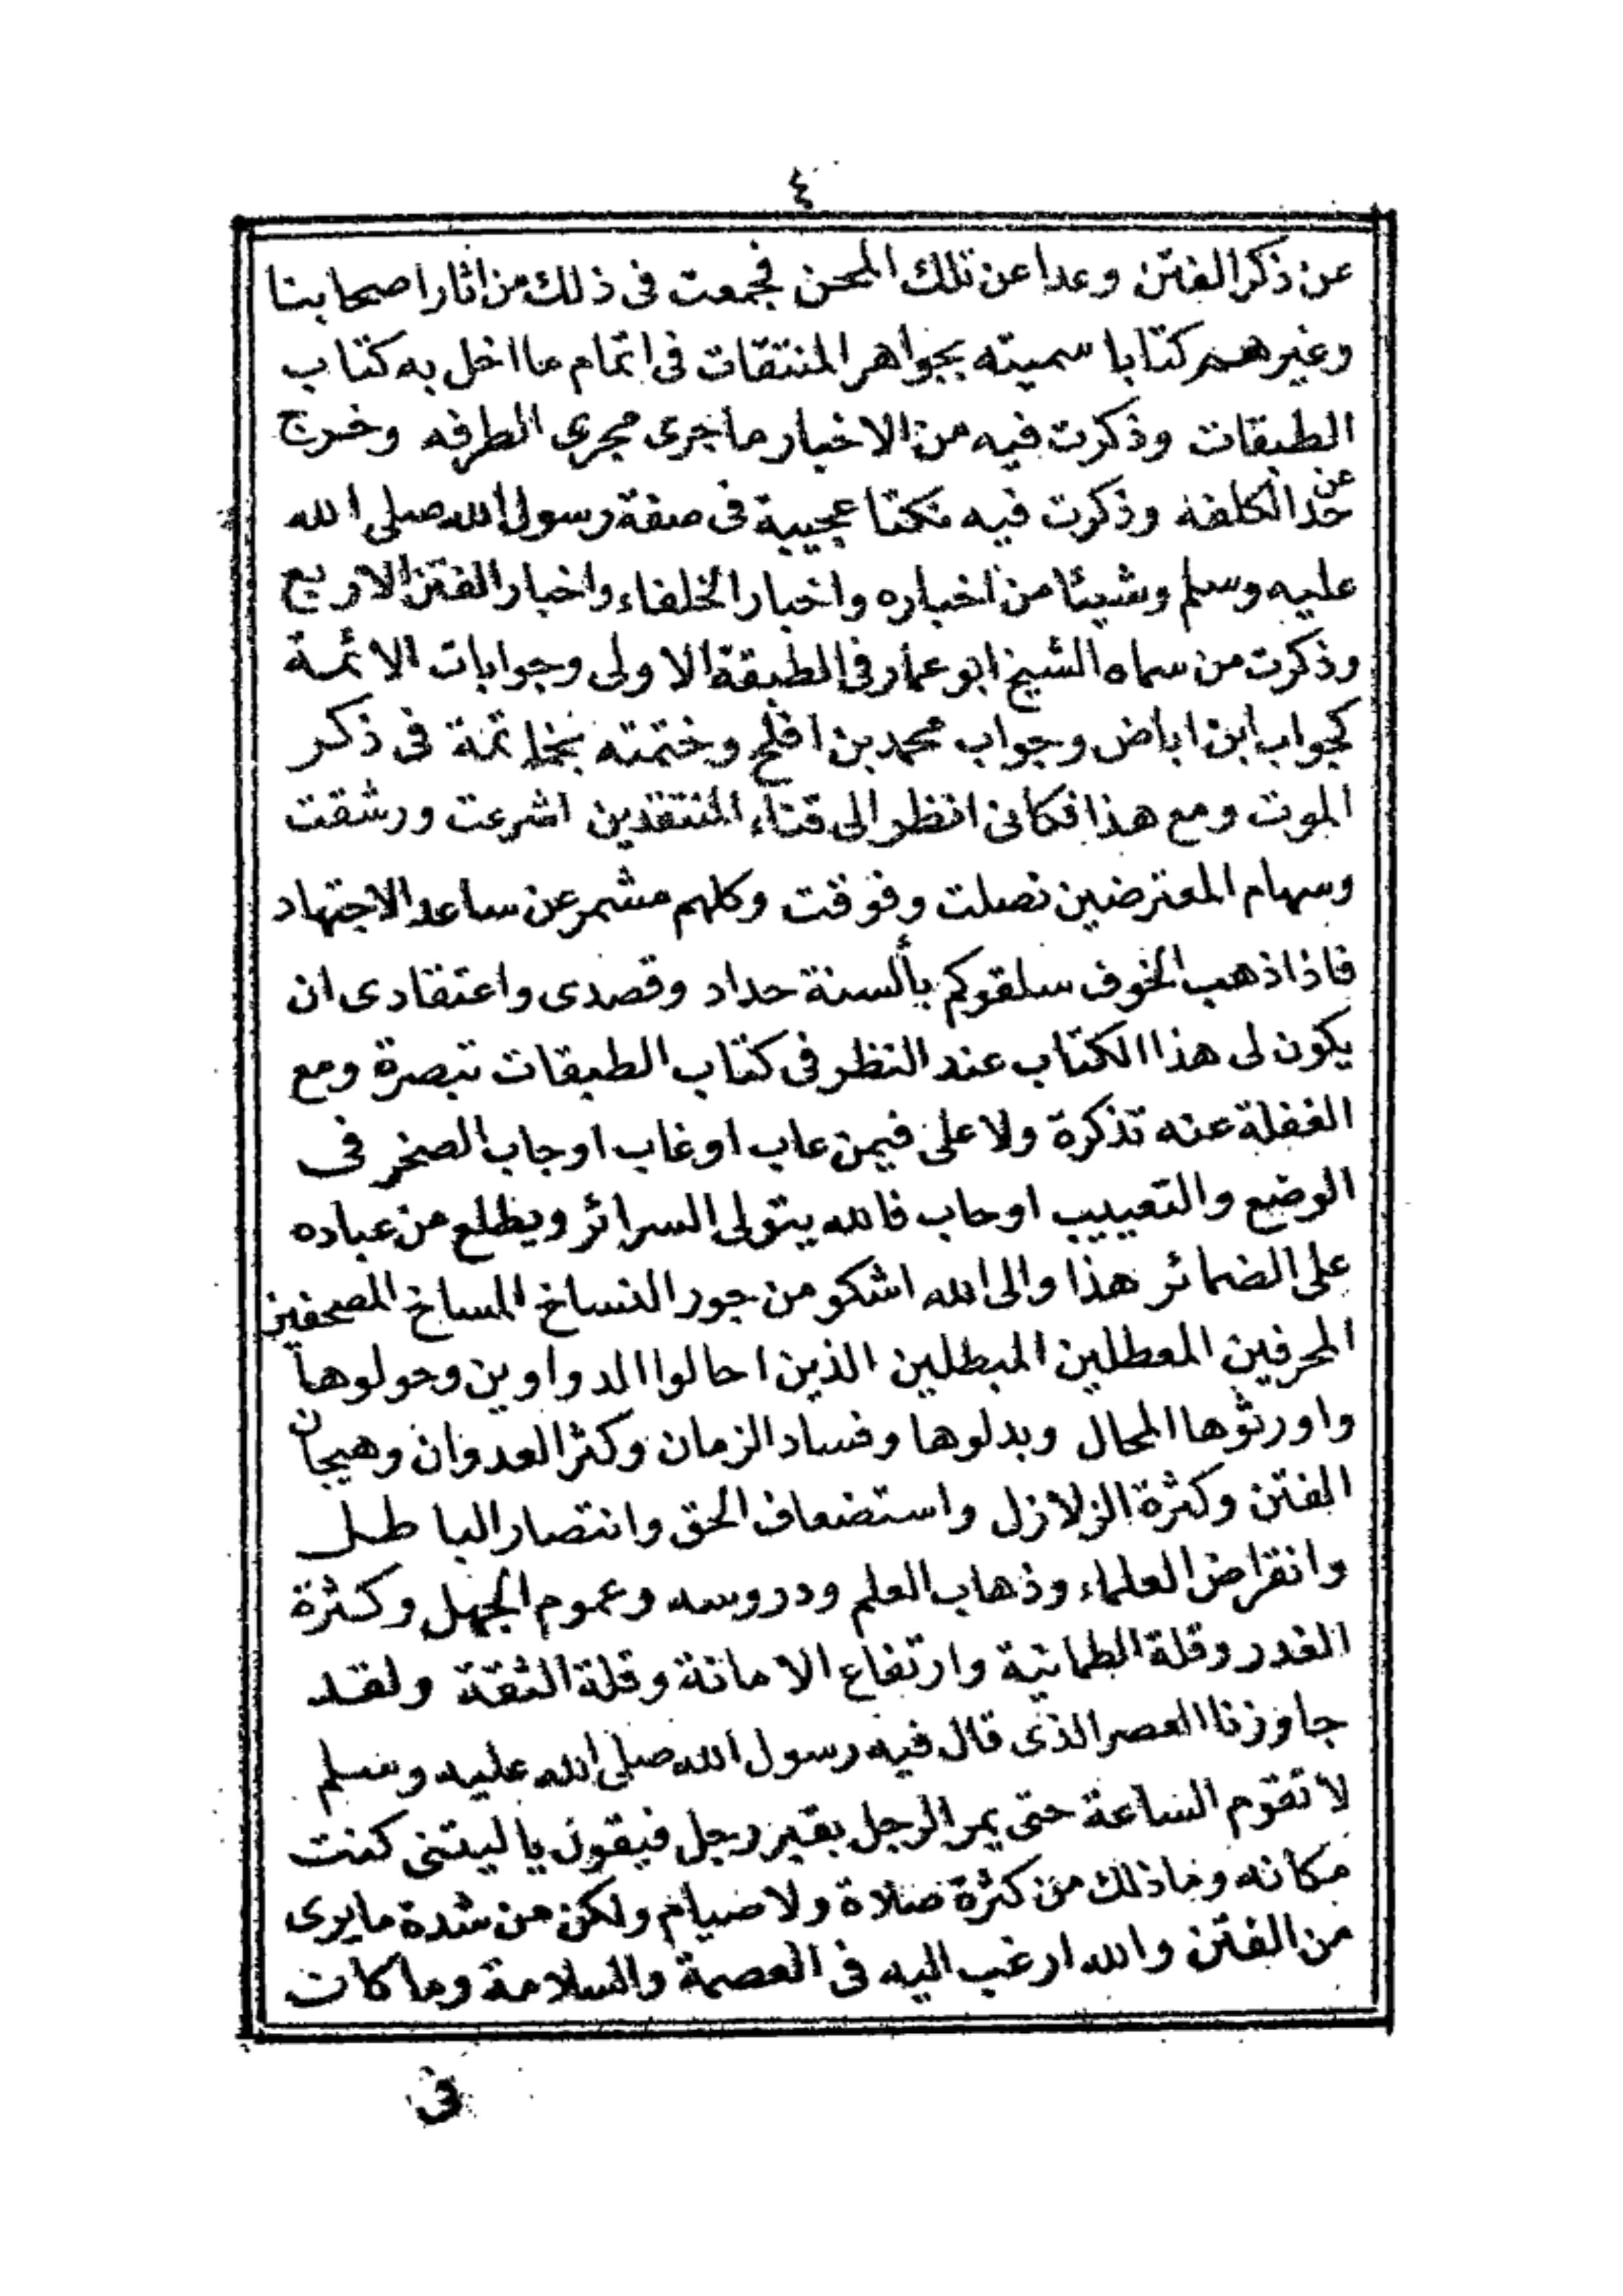 ٤
عن ذكر الفتن وعدا عن تلك المحن فجمعت فى ذلك من اثار اصحابنا
وغيرهم كتابا سميته بجواهر المنتقات فى اتمام ما اخل به كتاب
الطبقات وذكرت فيه من الاخبار ما جرى مجرى الطرفه وخرج
عن حد الكلفة وذكرت فيه نكتا عجيبة فى صفة رسول الله صلى الله
عليه وسلم وشيئا من اخباره واخبار الخلفاء واخبار الفتن الاربع
وذكرت من سماه الشيخ ابو عمار فى الطبقة الاولى وجوابات الائمة
كجواب ابن اباض وجواب محمد بن افلح وختمته بخاتمة فى ذكر
الموت ومع هذا فكانى انظر الى قناء المنتقدين اشرعت ورشقت
وسهام المعترضين نصلت وفوقت وكلهم مشمر عن ساعد الاجتهاد
فاذا ذهب الخوف سلقوكم بألسنة حداد وقصدى واعتقادى ان
يكون لى هذا الكتاب عند النظر فى كتاب الطبقات تبصرة ومع
الغفلة عنه تذكرة ولا على فيمن عاب او غاب او جاب الصخر فى
الوضع والتعييب او حاب فالله يتولى السرائر ويطلع من عباده
على الضمائر هذا والى الله اشكو من جور النساخ المساخ المصحفين
المحرفين المعطلين المبطلين الذين احالوا الدواوين وحولوها
واورثوها المحال وبدلوها وفساد الزمان وكثر العدوان وهيجان
الفتن وكثرة الزلازل واستضعاف الحق وانتصار الباطل
وانقراض العلماء وذهاب العلم ودروسه وعموم الجهل وكثرة
الغدر وقلة الطمانية وارتفاع الامانة وقلة الثقة ولقد
جاوزنا العصر الذى قال فيه رسول الله صلى الله عليه وسلم
لا تقوم الساعة حتى يمر الرجل بقبر رجل فيقول يا ليتنى كنت
مكانه وما ذلك من كثرة صلاة ولا صيام ولكن من شدة ما يرى
من الفتن والله ارغب اليه فى العصمة والسلامة وما كان
فى